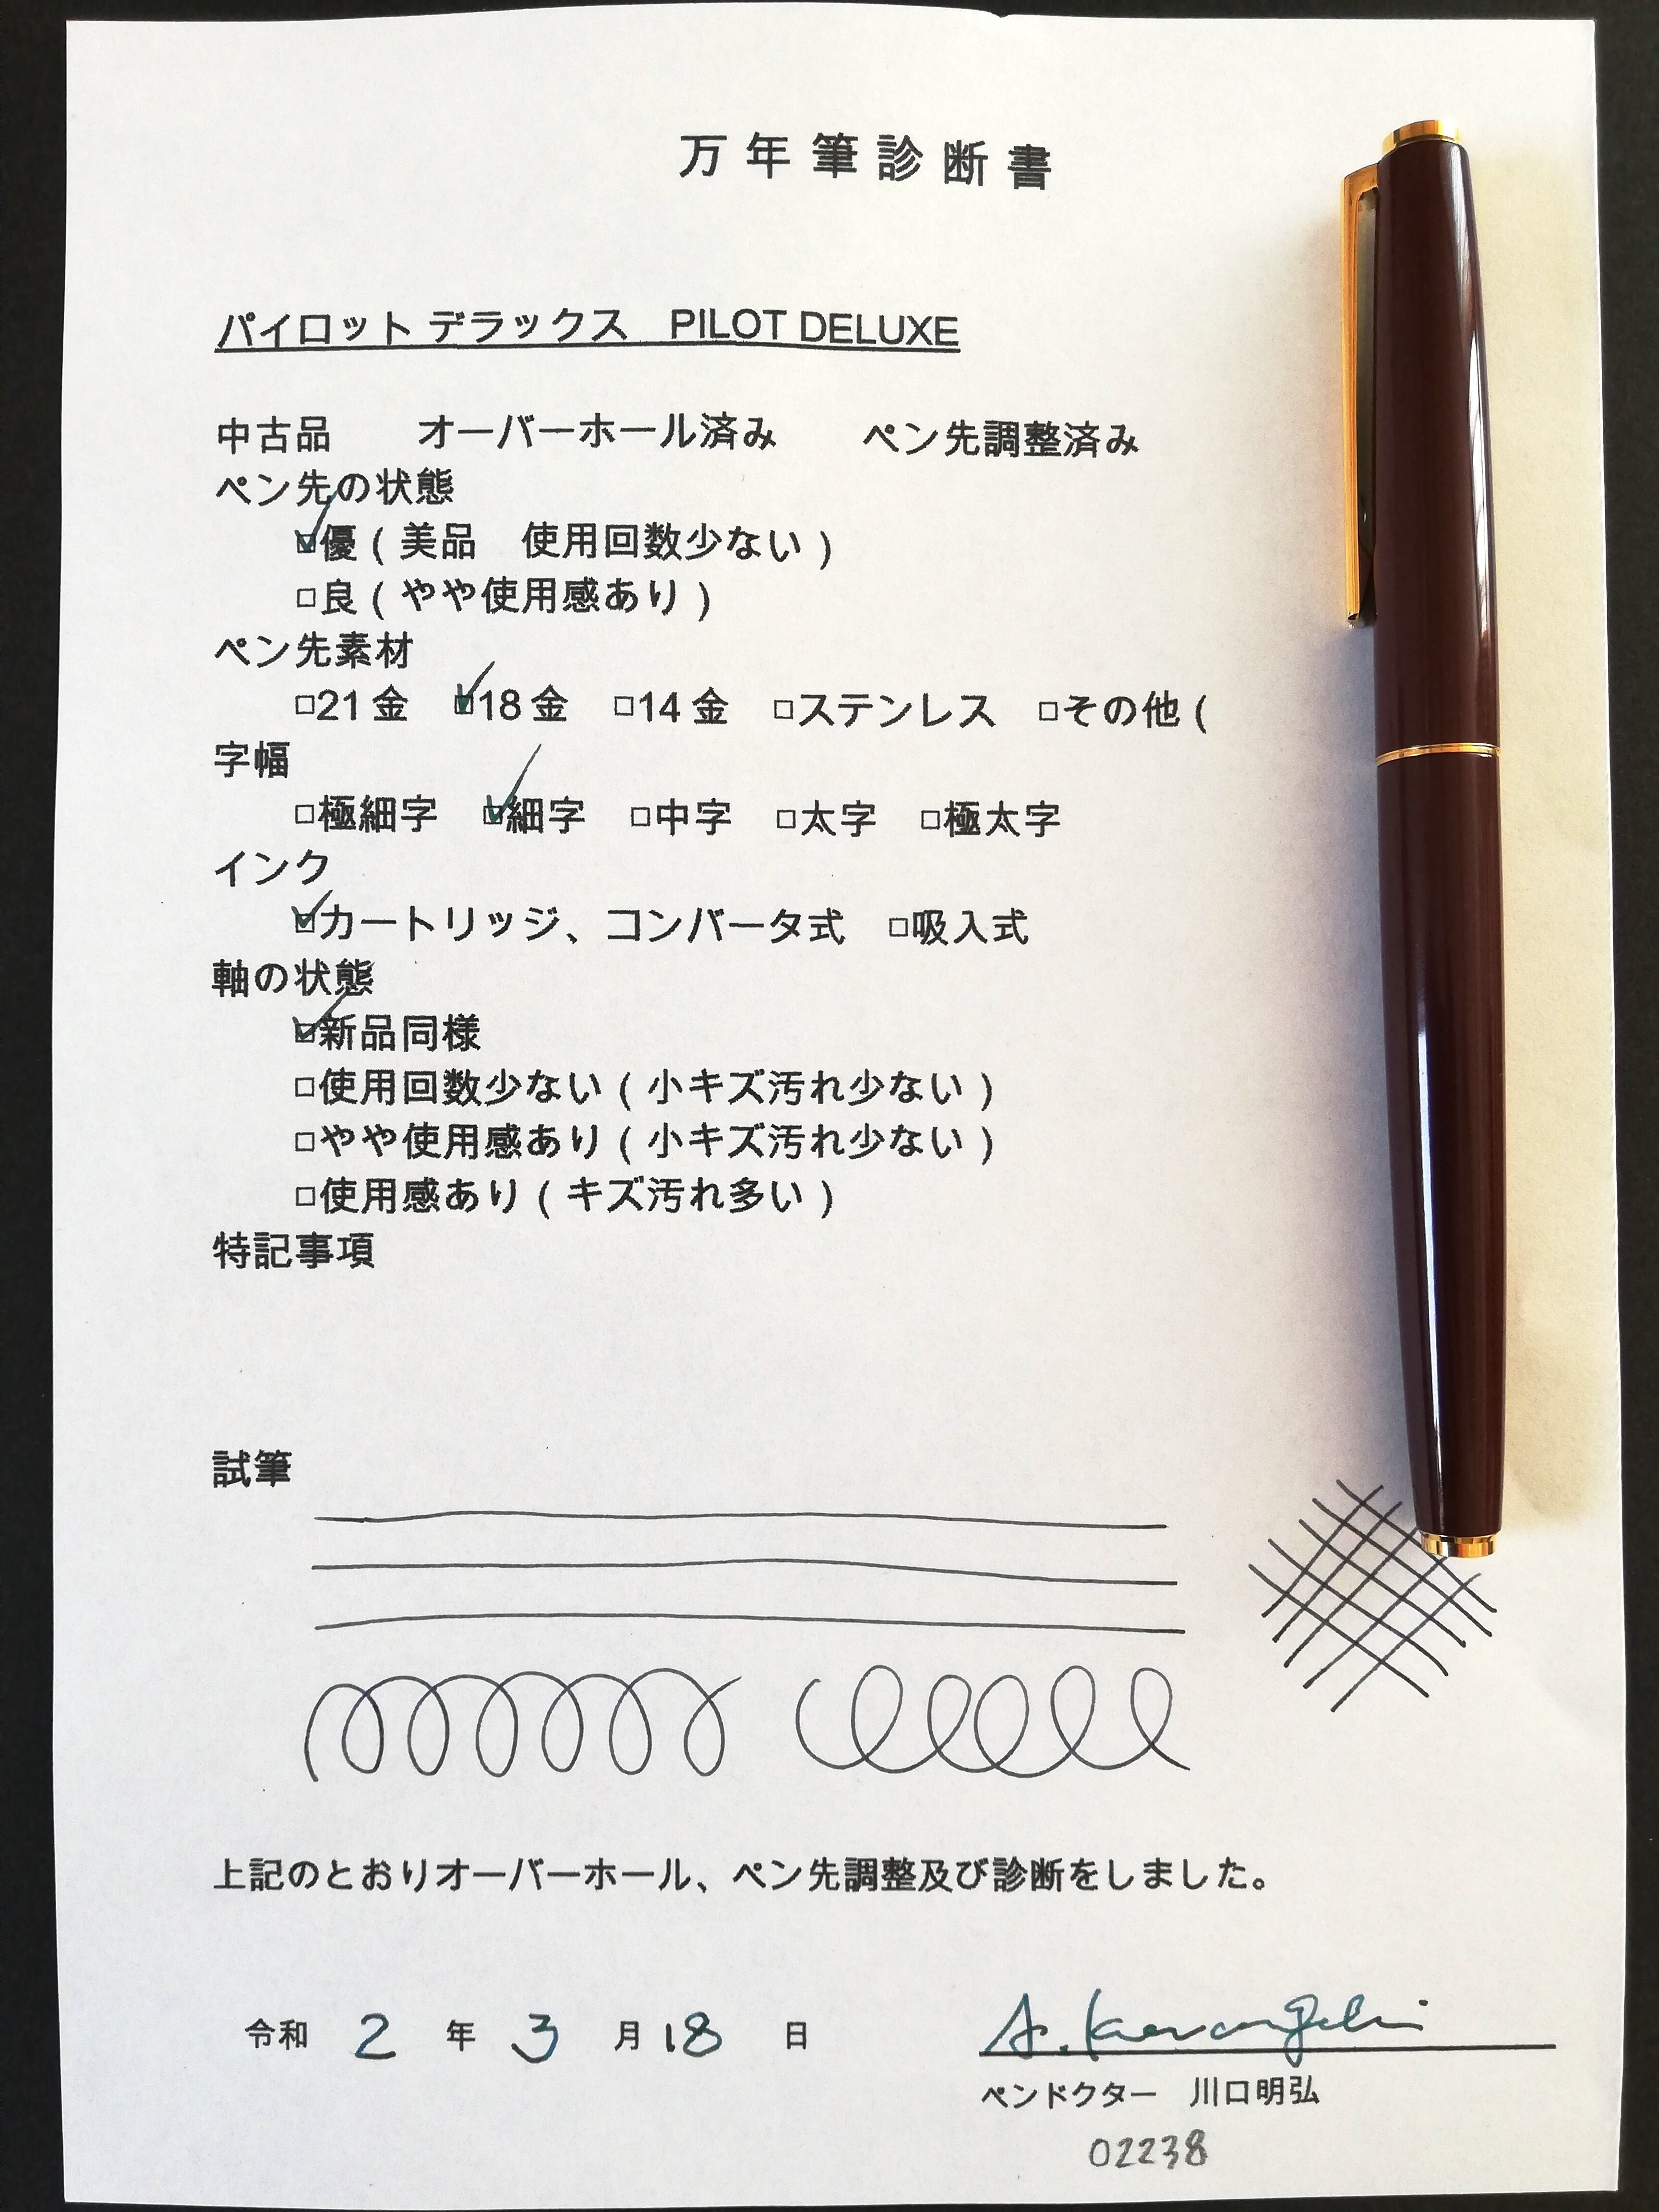 万年筆診断書
パイロット デラックス　PILOT DELUXE
中古品　　オーバーホール済み　　ペン先調整済み
ペン先の状態
☑優（美品　使用回数少ない）
□良（やや使用感あり）
ペン先素材
□21金　☑18金　□14金　□ステンレス　□その他（
字幅
□極細字　☑細字　□中字　□太字　□極太字
インク
☑カートリッジ、コンバータ式　□吸入式
軸の状態
☑新品同様
□使用回数少ない（小キズ汚れ少ない）
□やや使用感あり（小キズ汚れ少ない）
□使用感あり（キズ汚れ多い）
特記事項
試筆
上記のとおりオーバーホール、ペン先調整及び診断をしました。
令和 2 年 3 月 18 日　A. Kawaguchi
ペンドクター　川口明弘
02238